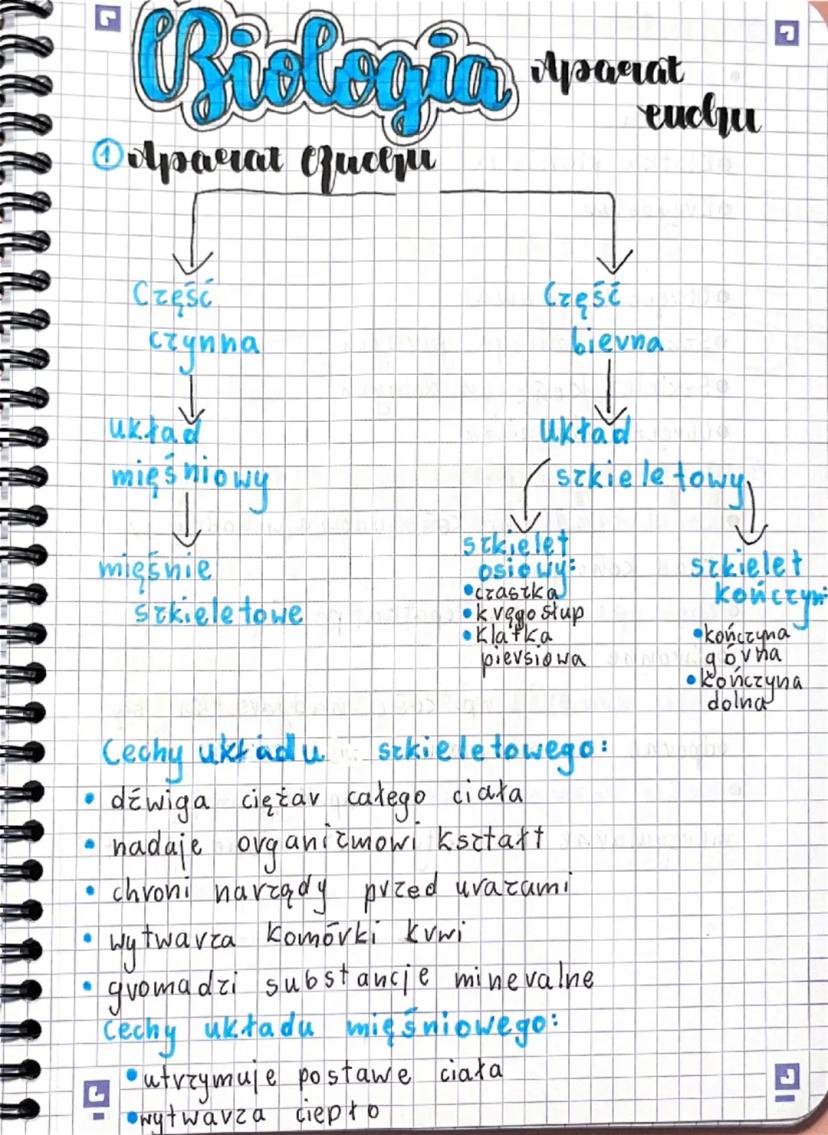 Biologia
Aparat
ruchu
① Aparat Ruchu
Część
czynna
układ
mięśniowy
mięśnie
szkieletowe
Część
bierna
układ
szkieletowy
szkielet
osiowy:
• czaszka
• kręgosłup
• klatka
piersiowa
szkielet
kończyn:
• kończyna
górna
• kończyna
dolna
Cechy układu szkieletowego:
• dźwiga ciężar całego ciała
• nadaje organizmowi kształt
• chroni narządy przed urazami
• wytwarza komórki krwi
• gromadzi substancje mineralne
Cechy układu mięśniowego:
• utrzymuje postawe ciała
• wytwarza ciepło